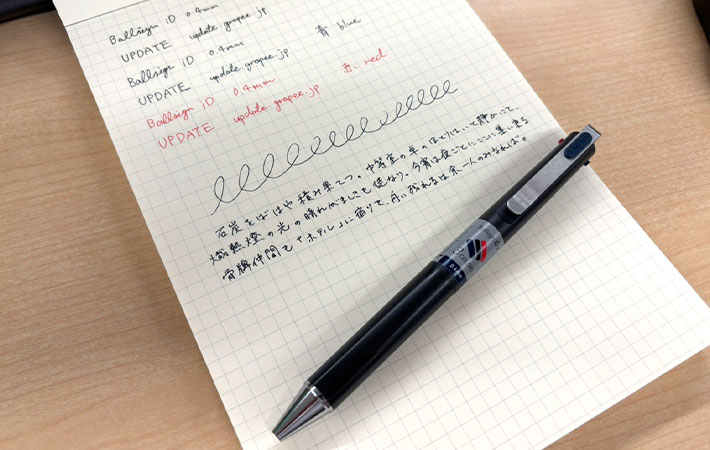 Ballsign iD 0.4mm
UPDATE update.grapee.jp
Ballsign iD 0.4mm 青 blue
UPDATE update.grapee.jp
Ballsign iD 0.4mm 赤 red
UPDATE update.grapee.jp
石炭をばはや積み果てつ。中等室の卓のほとりはいと静かにて、
熾熱燈の光の晴れがましきも徒なり。今宵は夜ごとにここに集ひ来る
骨牌仲間も「ホテル」に宿りて、舟に残れるは余一人のみなれば。